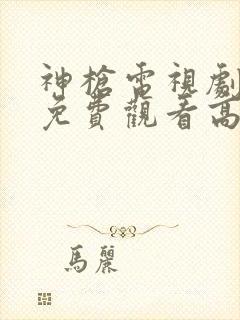 神槍電視劇
免費觀看高
馬麗